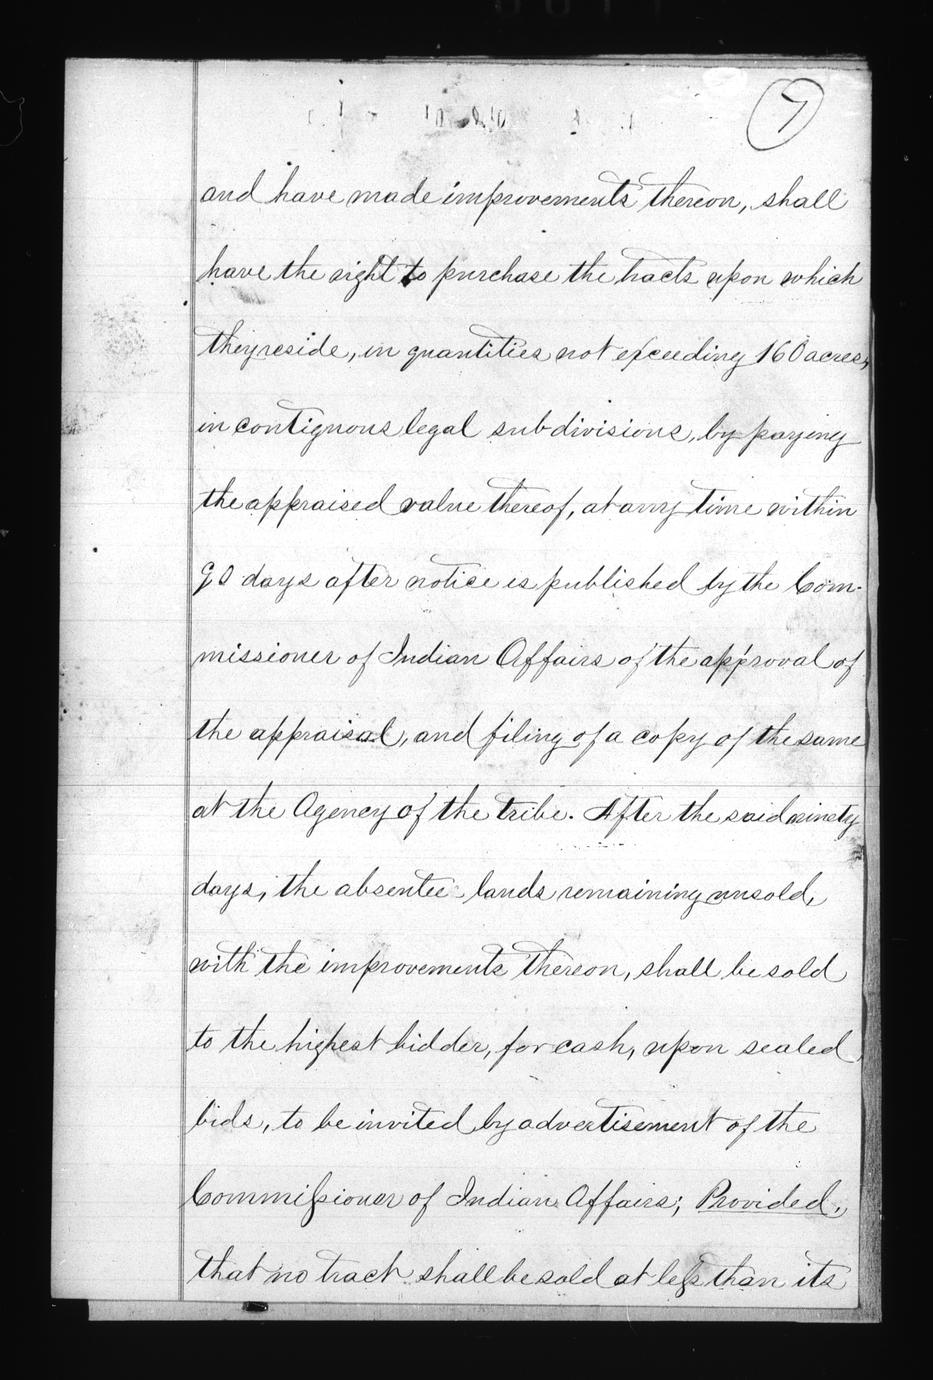 7
and have made improvements thereon, shall
have the right to purchase the tracts upon which
they reside, in quantities not exceeding 160 acres,
in contiguous legal subdivisions, by paying
the appraised value thereof, at any time within
90 days after notice is published by the Com-
missioner of Indian Affairs of the approval of
the appraisal, and filing of a copy of the same
at the Agency of the tribe. After the said ninety
days, the absentee lands remaining unsold,
with the improvements thereon, shall be sold
to the highest bidder, for cash, upon sealed
bids, to be invited by advertisement of the
Commissioner of Indian Affairs; Provided,
that no tract shall be sold at less than its